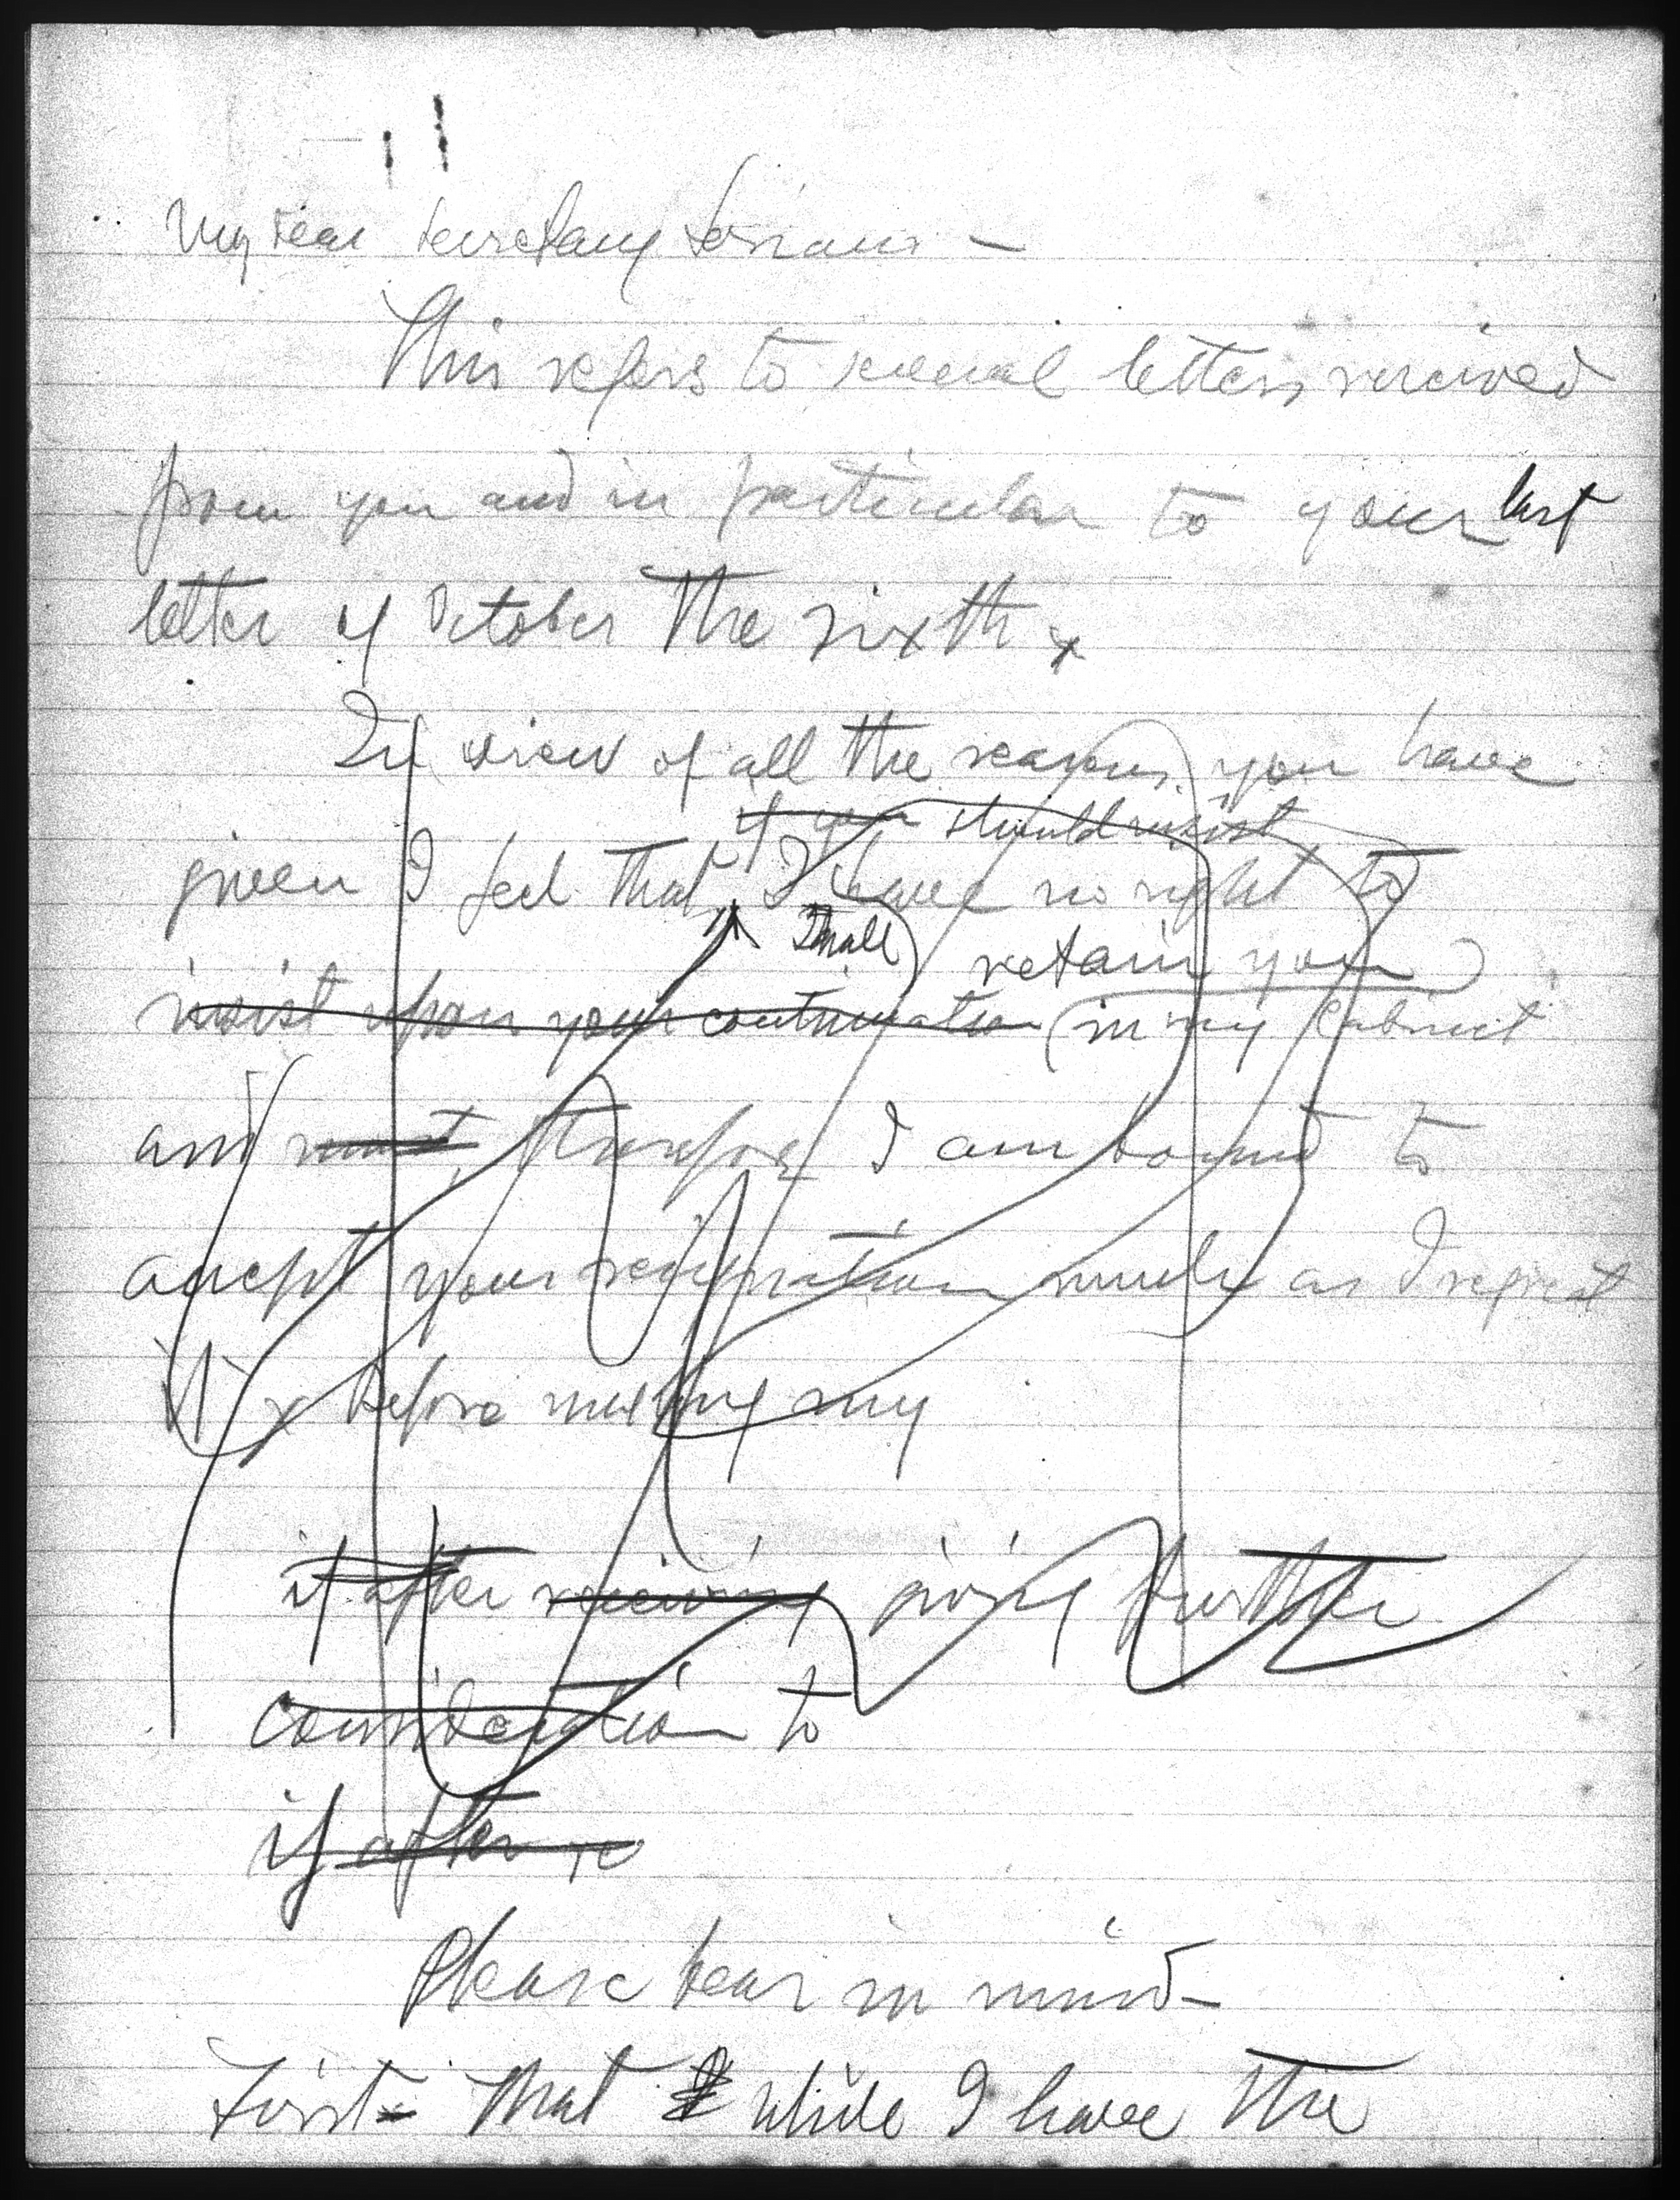 My dear Secretary Soriano —
This refers to several letters received
from you and in particular to your last
letter of October the sixth x
In view of all the reasons you have
if you should insist
given I feel that I have no right to
shall retain you
insist upon your continuation (in my Cabinet
and must, therefore I am bound to
accept your resignation much as I regret
it x Before making my
if after receiving giving further
consideration to
if after re
Please bear in mind —
First — that while I have the